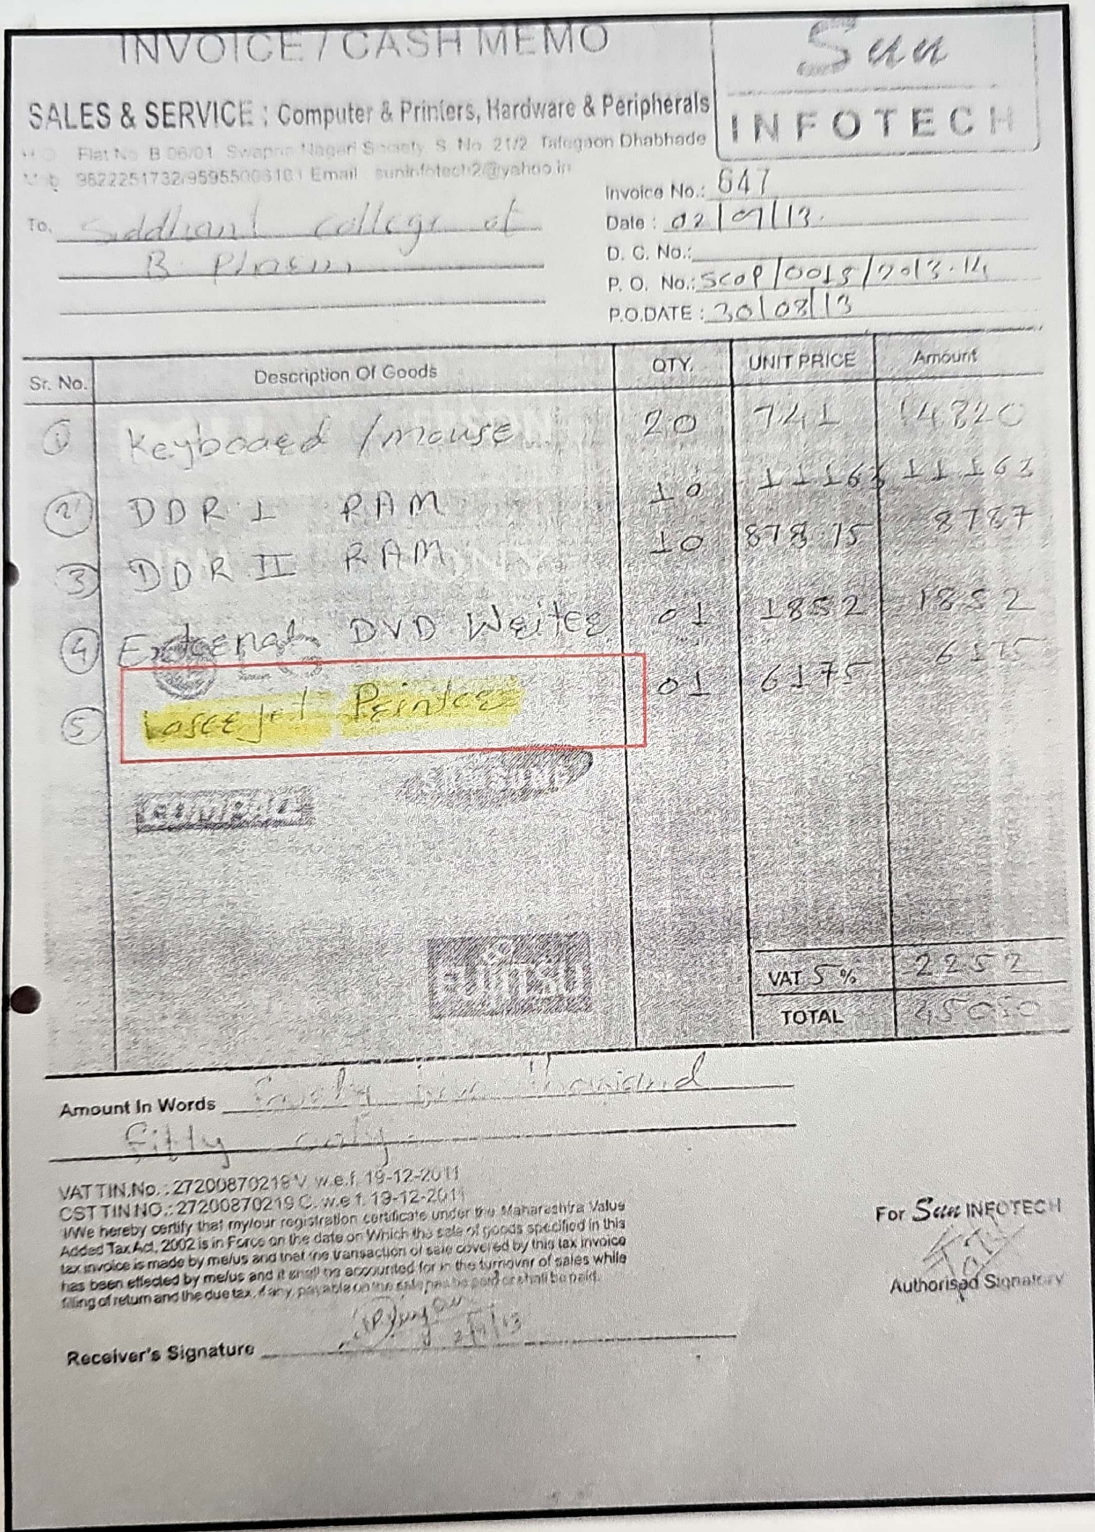 INVOICE / CASH MEMO
Sun
INFOTECH
SALES & SERVICE : Computer & Printers, Hardware & Peripherals
Flat No. B 06/01 Swapna Nagari Society S. No. 21/2 Talegaon Dhabhade
Mob 9822251732/9595500 Email suninfotech2@yahoo.in
Invoice No.: 647
To, Siddhant college of
Date : 02/09/13.
B
D. C. No.:
P. O. No.: SCOP/0013/2013-14
P.O.DATE : 30/08/13
Sr. No. Description Of Goods QTY. UNIT PRICE Amount
1 Keyboard /mouse 20 741 14820
2 DDR I RAM 10 11163 11163
3 DDR II RAM 10 878.75 8787
4 External DVD Writer 01 1852 1852
5 Laserjet Printer 01 6175 6175
SAMSUNG
COMPAQ
FUJITSU
VAT 5 % 2252
TOTAL 45050
Amount In Words thousand
Fifty only
VAT TIN.No. : 27200870219 V. w.e.f. 19-12-2011
CST TIN NO.: 27200870219 C. w.e f. 19-12-2011
I/We hereby certify that my/our registration certificate under the Maharashtra Value
Added Tax Act, 2002 is in Force on the date on Which the sale of goods specified in this
tax invoice is made by me/us and that the transaction of sale covered by this tax invoice
has been effected by me/us and it shall be accounted for in the turnover of sales while
filling of return and the due tax, if any, payable on the sale has be paid or shall be paid.
For Sun INFOTECH
Authorised Signatory
Receiver's Signature 2/9/13